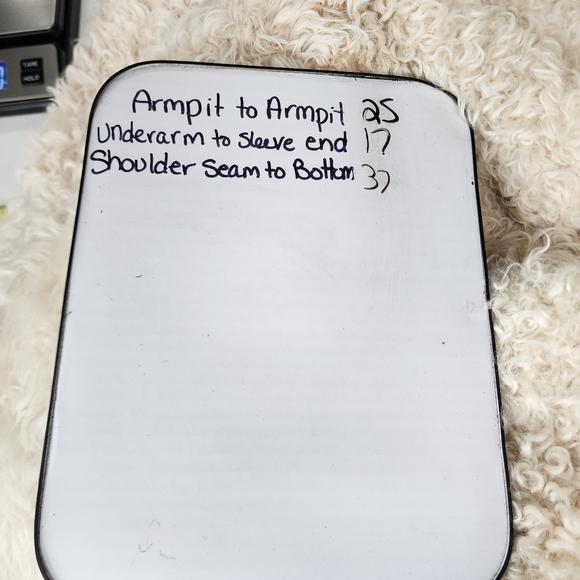 TARE
HOLD
Armpit to Armpit 25
Underarm to Sleeve end 17
Shoulder Seam to Bottom 37